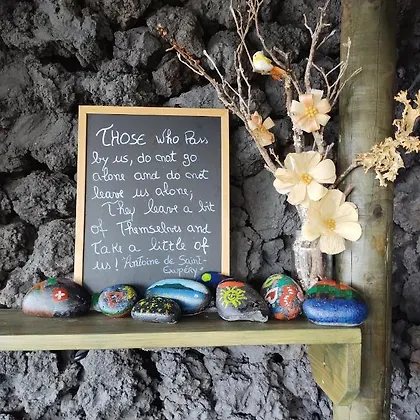 THOSE WHO PASS
by us, do not go
alone and do not
leave us alone;
They leave a bit
of Themselves and
take a little of
us! Antoine de Saint-
Exupéry